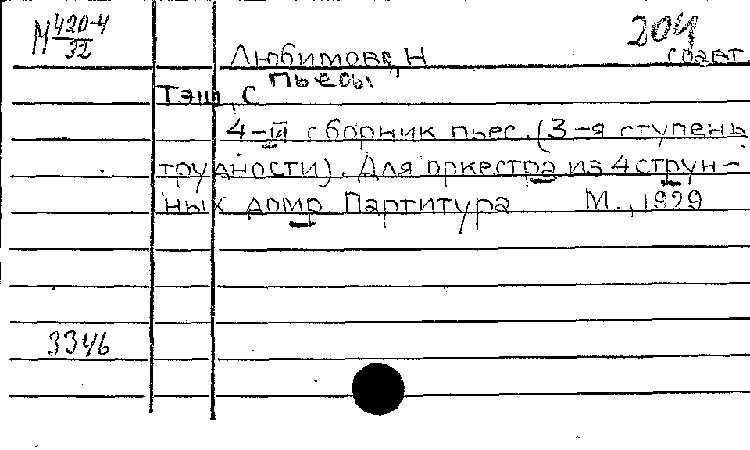 М 420-4
32
204
Любимова, Н
пьесы
Тэш, С
4-й сборник пьес. (3-я ступень
трудности). Для оркестра из 4струн-
ных домр Партитура М., 1929
3346